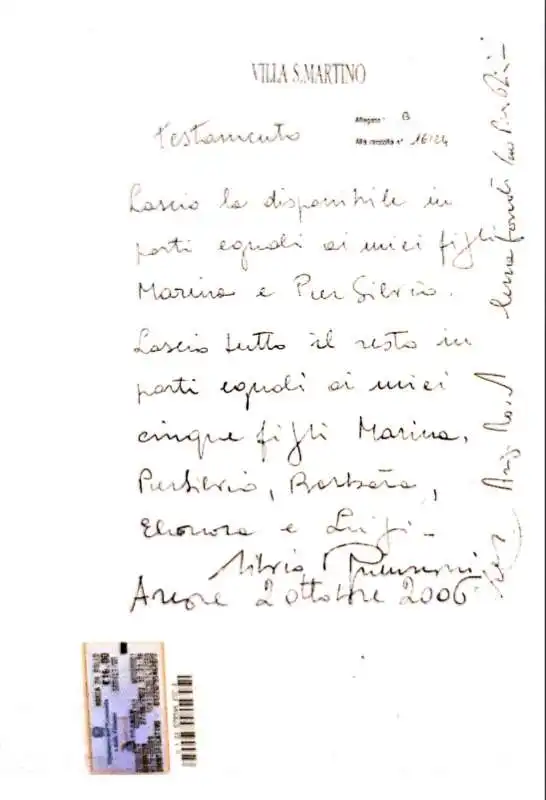 VILLA S.MARTINO
Allegato " B
Alla raccolta n° 16124
Testamento
Lascio la disponibile in
parti eguali ai miei figli
Marina e Pier Silvio.
Lascio tutto il resto in
parti eguali ai miei
cinque figli Marina,
PierSilvio, Barbara,
Eleonora e Luigi -
Silvio Berlusconi
Arcore 2 ottobre 2006